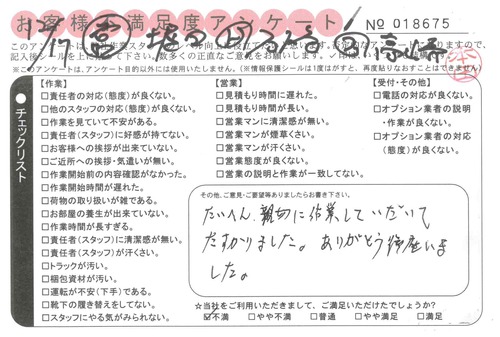 お客様満足度アンケート
No 018675
12/17
このアン
記入後シールを上に貼って下さい。数多くの正直なご意見をお願いします。
※このアンケートは、アンケート目的以外には使用いたしません。(※情報保護シールは1度はがすと、再度貼りなおすことはできません)
チェックリスト
【作業】
□責任者の対応(態度)が良くない。
□他のスタッフの対応(態度)が良くない。
□作業を見ていて不安がある。
□責任者(スタッフ)に好感が持てない。
□お客様への挨拶が出来ていない。
□ご近所への挨拶・気遣いが無い。
□作業開始前の内容確認がなかった。
□作業開始時間が遅れた。
□荷物の取り扱いが雑である。
□お部屋の養生が出来ていない。
□作業時間が長すぎる。
□責任者(スタッフ)に清潔感が無い。
□責任者(スタッフ)が汗くさい。
□トラックが汚い。
□梱包資材が汚い。
□運転が不安(下手)である。
□靴下の履き替えをしてない。
□スタッフにやる気がみられない。
【営業】
□見積もり時間に遅れた。
□見積もり時間が長い。
□営業マンに清潔感が無い。
□営業マンが煙草くさい。
□営業マンが汗くさい。
□営業態度が良くない。
□営業の説明と作業が一致してない。
【受付・その他】
□電話の対応が良くない。
□オプション業者の説明
・作業が良くない。
□オプション業者の対応
(態度)が良くない。
その他、ご意見・ご要望等ありましたらお書き下さい。
たいへん、親切に作業していだいて
たすかりました。ありがとう御座いま
した。
☆当社をご利用いただきまして、ご満足いただけたでしょうか?
☑不満 □やや不満 □普通 □やや満足 □満足